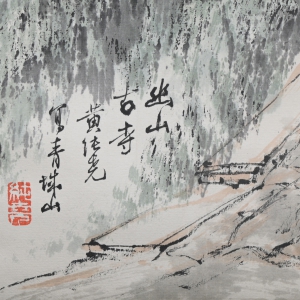 幽山
古寺
黄纯尧
写青城山
纯尧